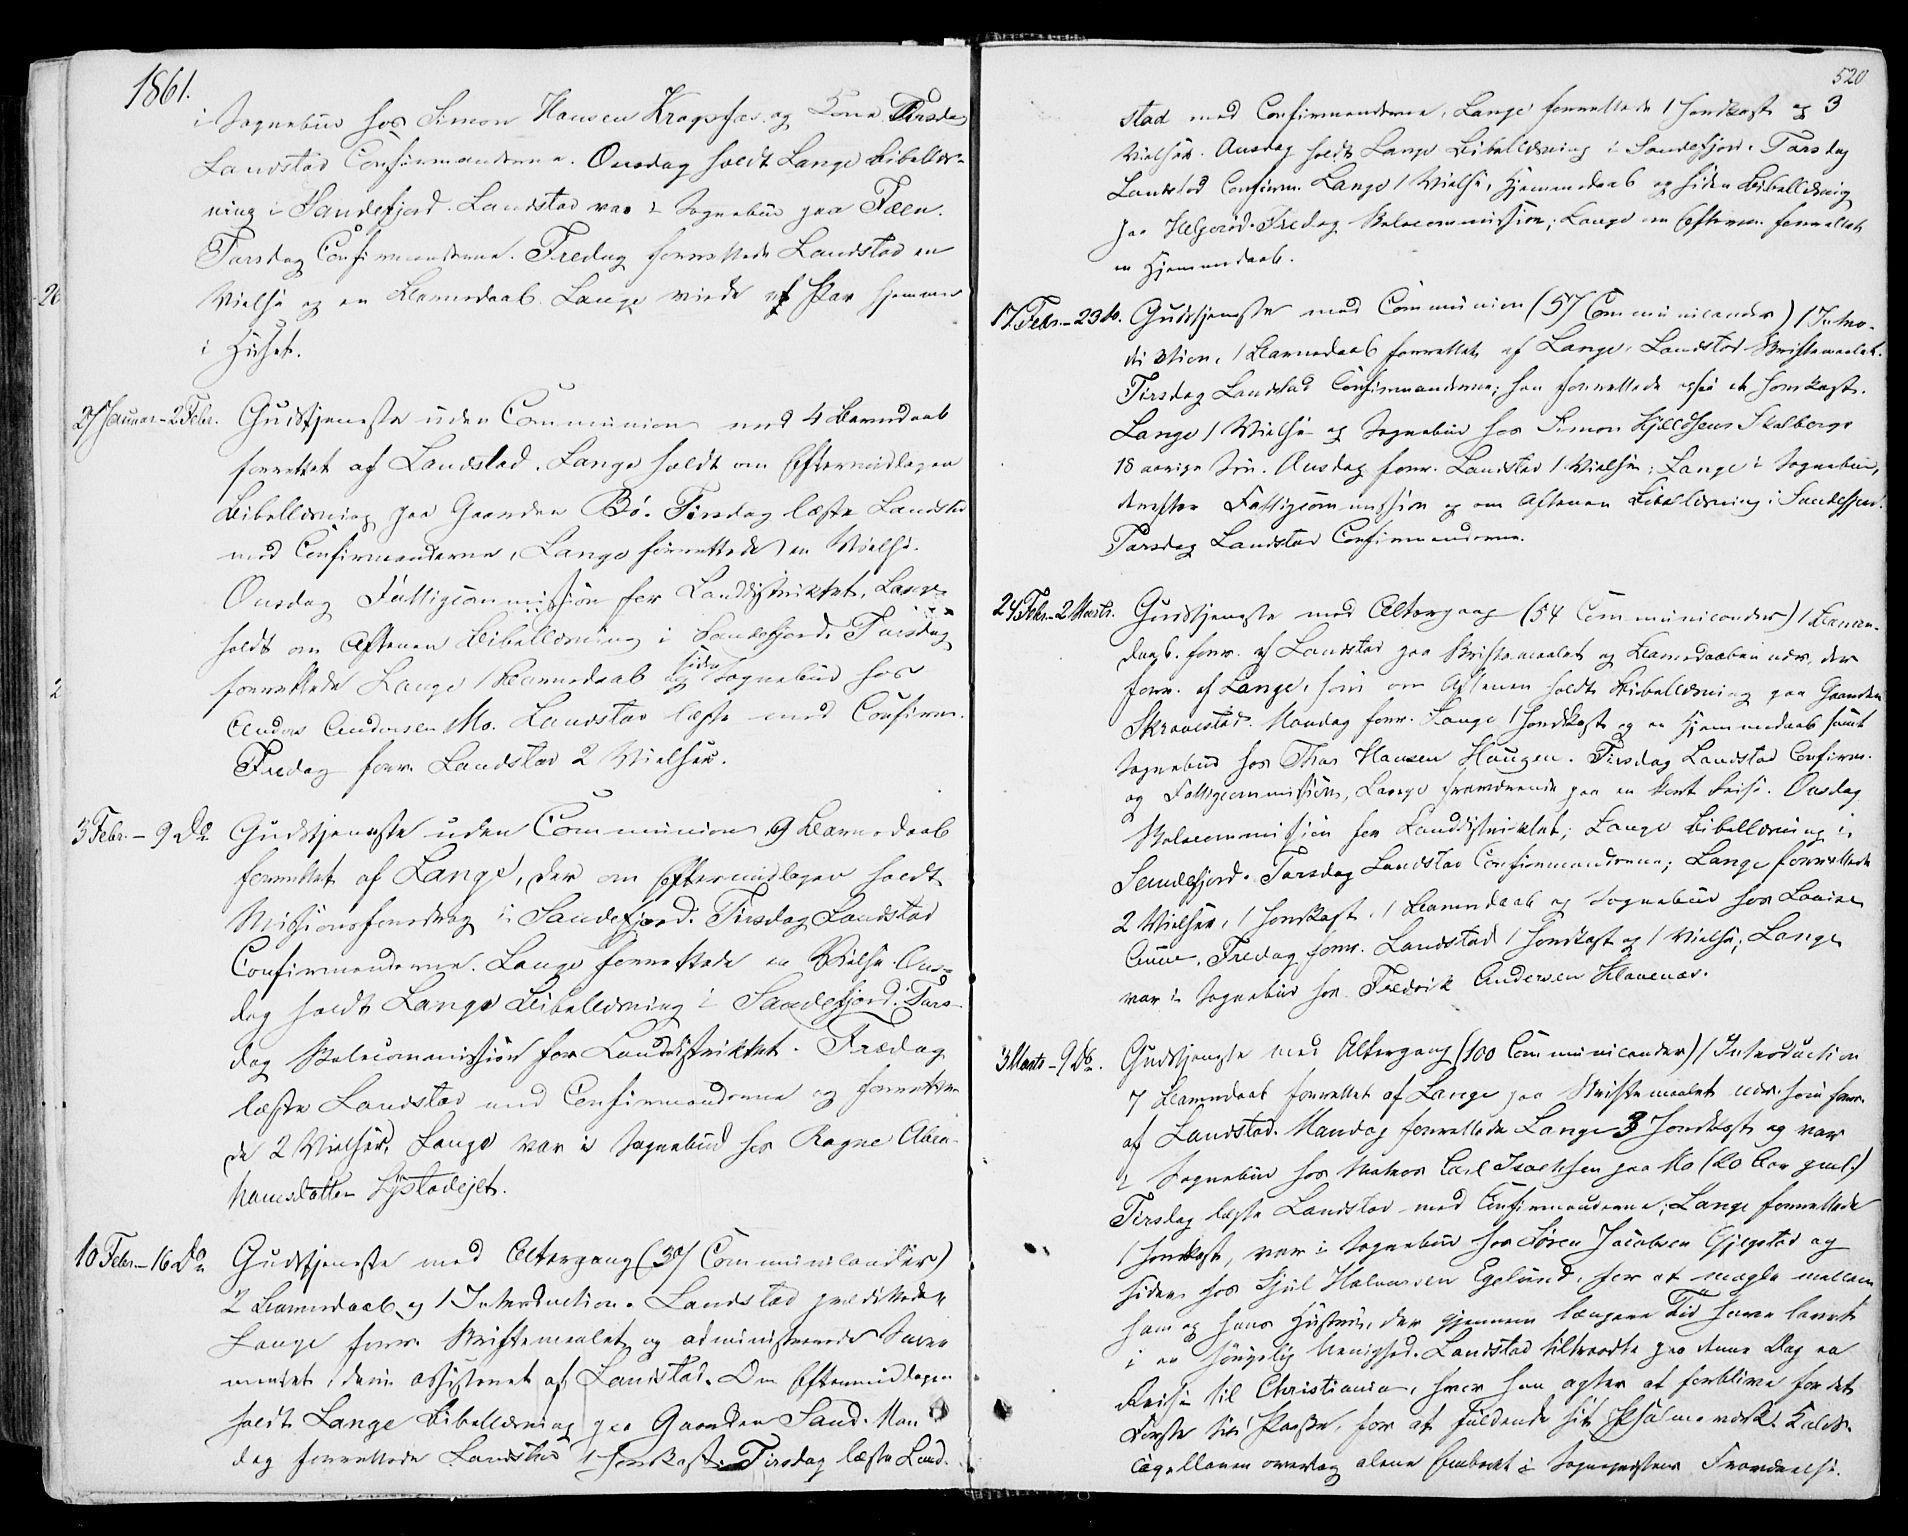 1861.
i Sognebud hos Simon Hansen Kragsfær og Kone Tirsdag
Landstad Confirmanderne. Onsdag holdt Lange Bibellæs-
ning i Sandefjord. Landstad var i Sognebud paa Fæen.
Torsdag Confirmanderne. Fredag forrettede Landstad en
Vielse og en Barnedaab. Lange viede et Par hjemme
i Huset.
27 Januar – 2 Febr. Gudstjeneste uden Communion med 4 Barnedaab
forrettet af Landstad. Lange holdt om Eftermiddagen
Bibellæsning paa Gaarden Bö. Tirsdag læste Landstad
med Confirmanderne, Lange forrettede en Vielse.
Onsdag Fattigcommission for Landdistriktet, Lange
holdt om Aftenen Bibellæsning i Sandefjord. Torsdag
forrettede Lange 1 Barnedaab og siden Sognebud hos
Anders Andersen Mo. Landstad læste med Confirm.
Fredag forr. Landstad 2 Vielser.
3 Febr. – 9 Do. Gudstjeneste uden Communion, 9 Barnedaab
forrettet af Lange, der om Eftermiddagen holdt
Missionsforedrag i Sandefjord. Tirsdag Landstad
Confirmanderne. Lange forrettede en Vielse. Ons-
dag holdt Lange Bibellæsning i Sandefjord. Tors-
dag Skolecommission for Landdistriktet. Fredag
læste Landstad med Confirmanderne og forrette-
de 2 Vielser, Lange var i Sognebud hos Ragne Abra-
hamsdatter Lystadejet.
10 Febr. – 16 Do. Gudstjeneste med Altergang (37 Communicander)
2 Barnedaab og 1 Introduction. Landstad prædikede,
Lange forr. Skriftemaalet og administrerede Sacra-
mentet, deri assisteret af Landstad. Om Eftermiddagen
holdt Lange Bibellæsning paa Gaarden Sand. Man-
dag forrettede Landstad 1 Jordkast. Tirsdag læste Land-
520
stad med Confirmanderne, Lange forrettede 1 Jordkast og 3
Vielser. Onsdag holdt Lange Bibellæsning i Sandefjord. Torsdag
Landstad Confirm. Lange 1 Vielse, Hjemmedaab og siden Bibellæsning
paa Helgerød. Fredag Skolecommission; Lange om Efterm. forrettet
en Hjemmedaab.
17 Febr. – 23 do. Gudstjeneste med Communion (57 Communicander) 1 Intro-
duction, 1 Barnedaab forrettet af Lange, Landstad Skriftemaalet.
Tirsdag Landstad Confirmanderne; han forrettede ogsaa et Jordkast.
Lange 1 Vielse og Sognebud hos Simon Kjeldsens Skalbergs
18 aarige Søn. Onsdag forr. Landstad 1 Vielse; Lange i Sognebud,
derefter Fattigcommission og om Aftenen Bibellæsning i Sandefjord.
Torsdag Landstad Confirmanderne.
24 Febr. – 2 Marts. Gudstjeneste med Altergang (54 Communicander) 1 Barne-
daab. forr. af Landstad paa Skriftemaalet og Barnedaaben nær, der
forr. af Lange, som om Aftenen holdt Bibellæsning paa Gaarden
Skravestad. Mandag forr. Lange 1 Jordkast og en Hjemmedaab samt
Sognebud hos Thor Hansen Haugen. Tirsdag Landstad Confirm.
og Fattigcommission, Lange fraværende paa en kort Reise. Onsdag
Skolecommission for Landdistriktet; Lange Bibellæsning i
Sandefjord. Torsdag Landstad Confirmanderne; Lange forrettede
2 Vielser, 1 Jordkast, 1 Barnedaab og Sognebud hos Lovise
Aune. Fredag forr. Landstad 1 Jordkast og 1 Vielse; Lange
var i Sognebud hos Fredrik Andersen Klavenæs.
3 Marts – 9 Do. Gudstjeneste med Altergang (100 Communicander) 1 Introduction
7 Barnedaab forrettet af Lange paa Skriftemaalet nær som forr.
af Landstad. Mandag forrettede Lange 3 Jordkast og var
i Sognebud hos Matros Carl Isachsen paa Mo (20 Aar gml.)
Tirsdag læste Landstad med Confirmanderne; Lange forrettede
1 Jordkast, var i Sognebud hos Sören Jacobsen Gjegstad og
siden hos Hjul Halvorsen Egelund, for at mægle mellem
ham og hans Hustru, der gjennem længere Tid have levet
i en sørgelig Uenighed. Landstad tiltraadte paa denne Dag en
Reise til Christiania, hvor han agter at forblive for det
Første til Paaske, for at fuldende sit Psalmeværk. Kalds-
capellanen overtog alene Embedet i Sognepræstens Fraværelse.